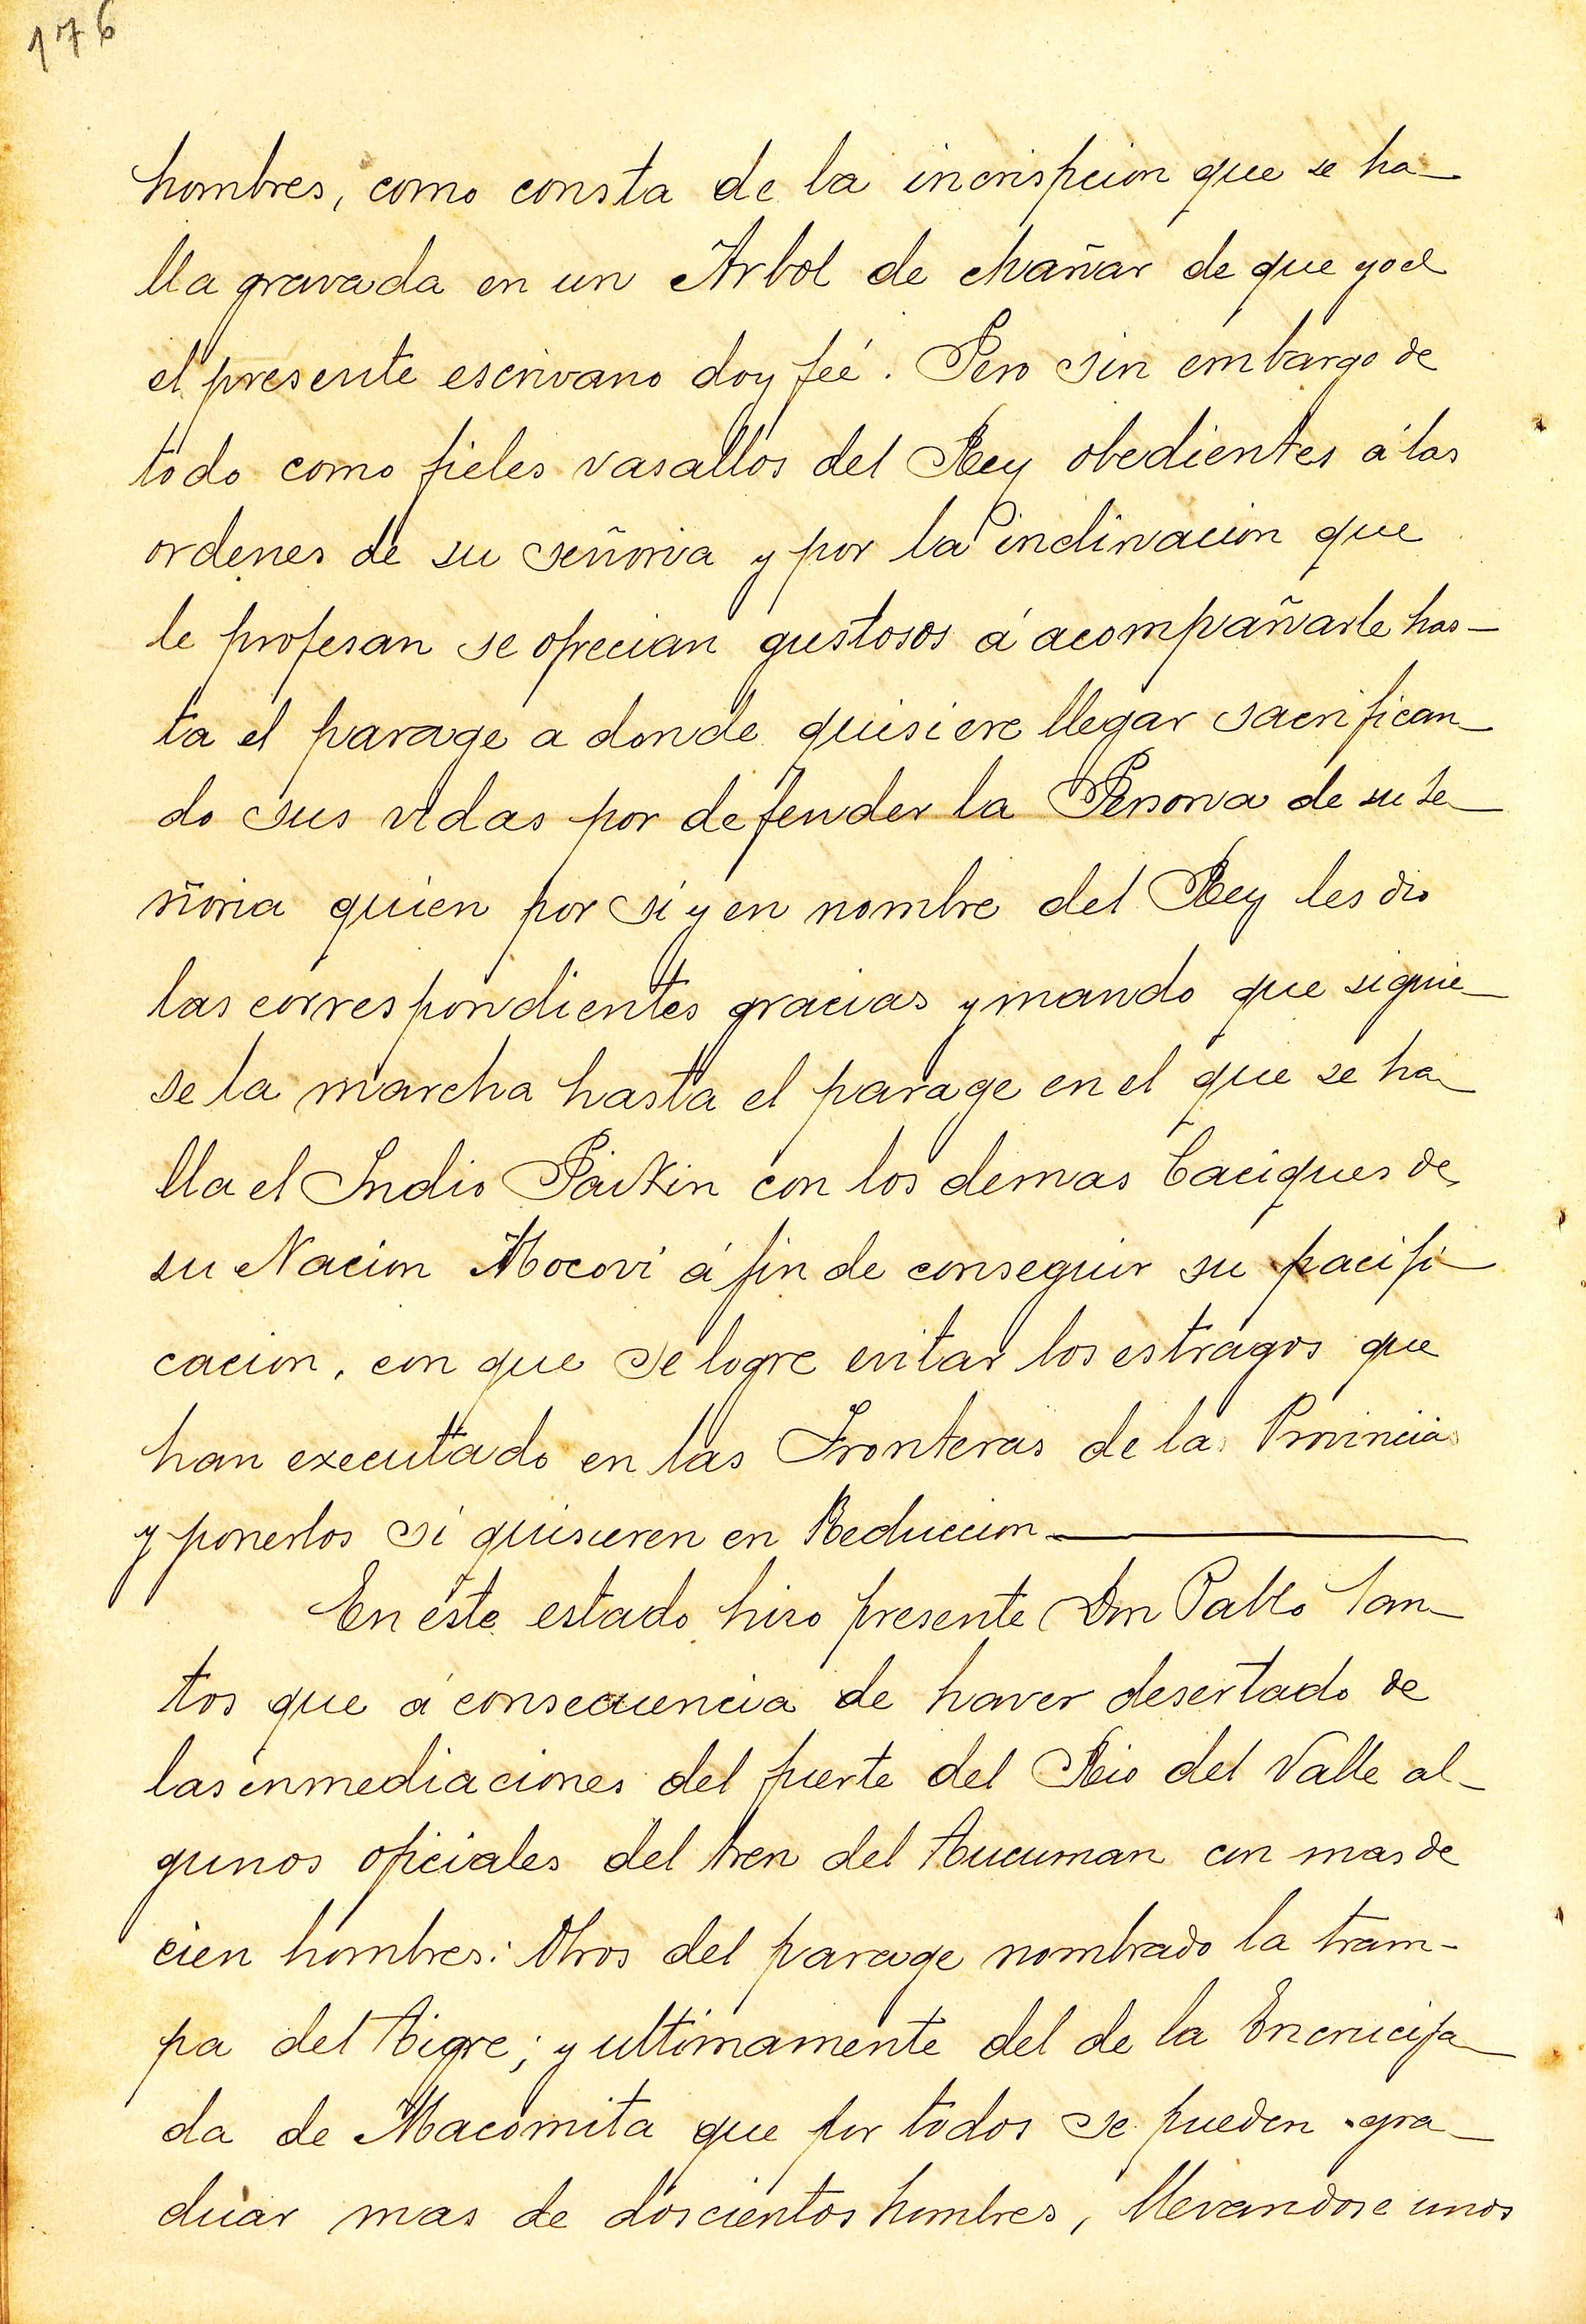 176
hombres, como consta de la incrispcion que se ha-
lla gravada en un Arbol de chañar de que yo el
el presente escrivano doy feé. Pero sin embargo de
todo como fieles vasallos del Rey obedientes á las
ordenes de su señoria y por la inclinacion que
le profesan se ofrecian gustosos á acompañarle has-
ta el parage a donde quisiere llegar sacrifican-
do sus vidas por defender la Persona de su se-
ñoria quien por sí y en nombre del Rey les dio
las correspondientes gracias y mando que siguie-
se la marcha hasta el parage en el que se ha-
lla el Indio Paikin con los demas Caciques de
su Nacion Mocoví á fin de conseguir su pacifi-
cacion, con que se logre evitar los estragos que
han executado en las Fronteras de la Provincia
y ponerlos si quisieren en Reduccion
En este estado hiso presente Don Pablo San-
tos que á consecuencia de haver desertado de
las inmediaciones del fuerte del Rio del Valle al-
gunos oficiales del tren del Tucuman con mas de
cien hombres: Otros del parage nombrado la tram-
pa del Tigre; y ultimamente del de la Encrucija-
da de Macomita que por todos se pueden gra-
duar mas de doscientos hombres, llevandose unos